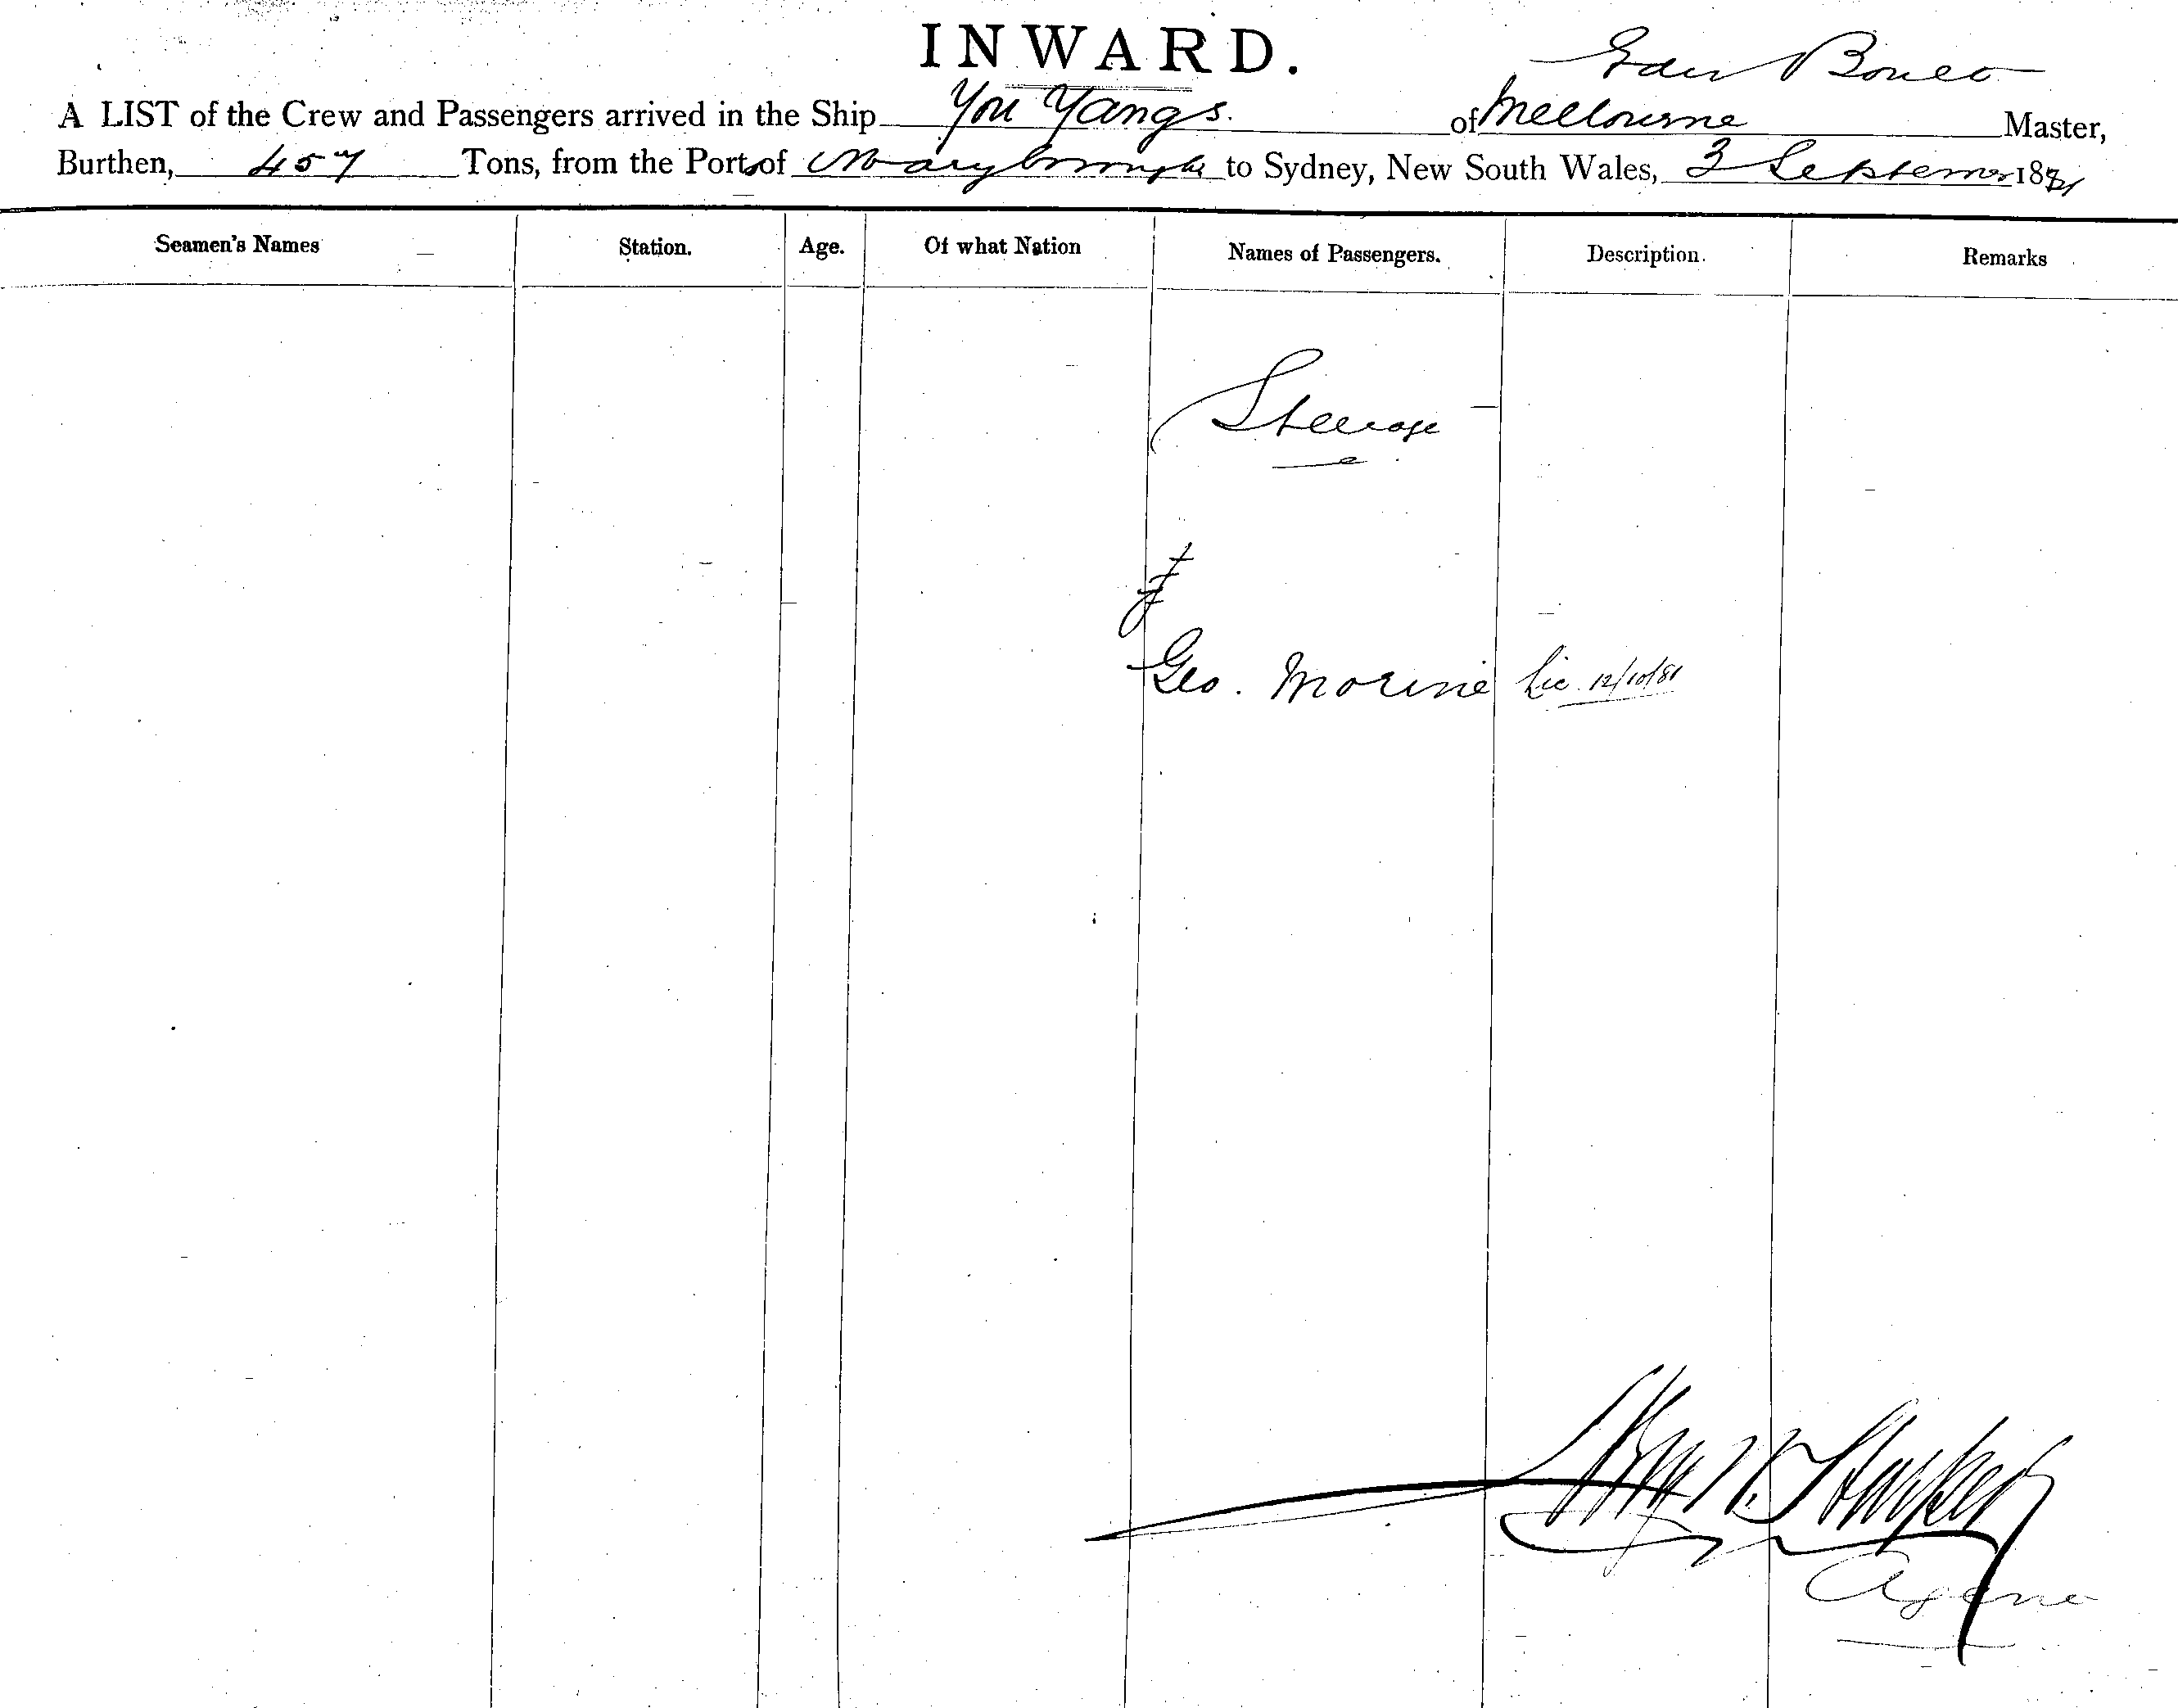 INWARD.
Edw Bonco
A LIST of the Crew and Passengers arrived in the Ship You Yangs. of Melbourne Master,
Burthen, 457 Tons, from the Port of Maryborough to Sydney, New South Wales, 3 September 1881
Seamen's Names Station. Age. Of what Nation Names of Passengers. Description. Remarks
Steerage
Geo. Morine Lic. 12/10/81
Agent